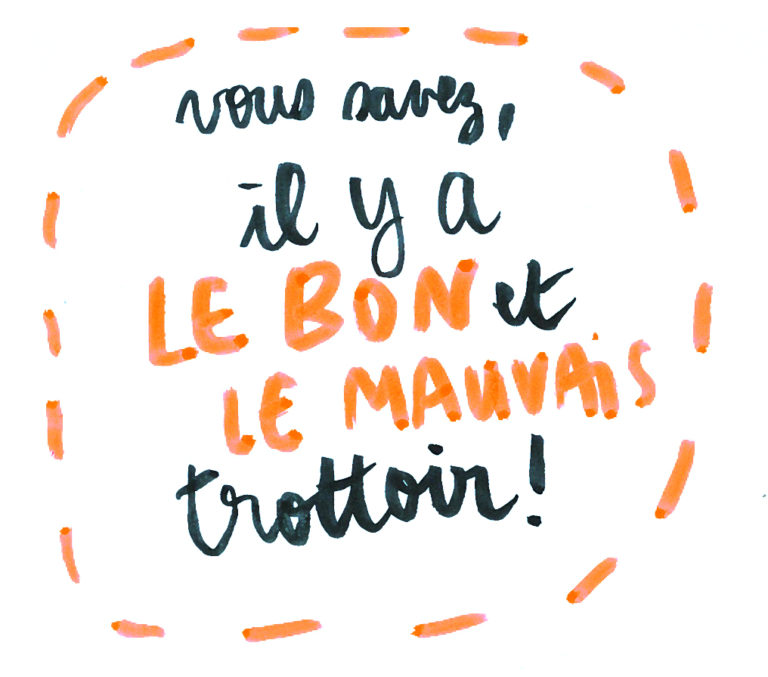 vous savez,
il y a
LE BON et
LE MAUVAiS
trottoir!